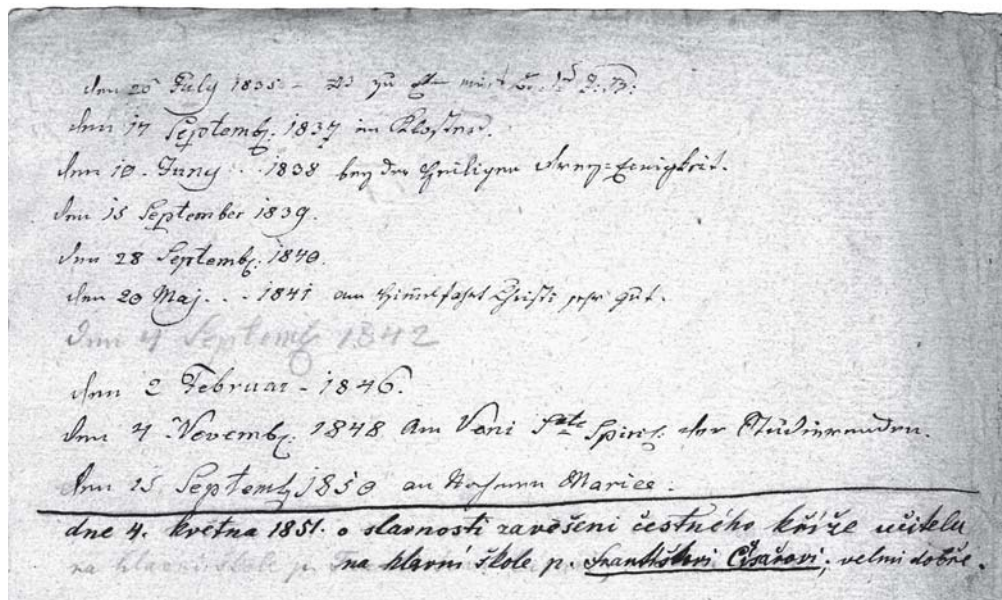 den 20 July 1835 - zu
den 17 Septemb. 1837 im Kloster.
den 10. Juny . . 1838 bey der Heiligen Drey=Einigkeit.
den 15 September 1839.
den 28 Septemb. 1840.
den 20 Maj. . . 1841 am Himelfahrt Christi sehr gut.
den 4 Septemb 1842
den 2 Februar - 1846.
den 4 Novemb. 1848 Am Veni Ste Spirit. der Studierenden.
den 15 Septemb 1850 an Nahmen Mariee.
dne 4. května 1851. o slavnosti zavěšení čestného kříže učitelu
na hlavní škole p. na hlavní škole p. Františkovi Císařovi; velmi dobře.